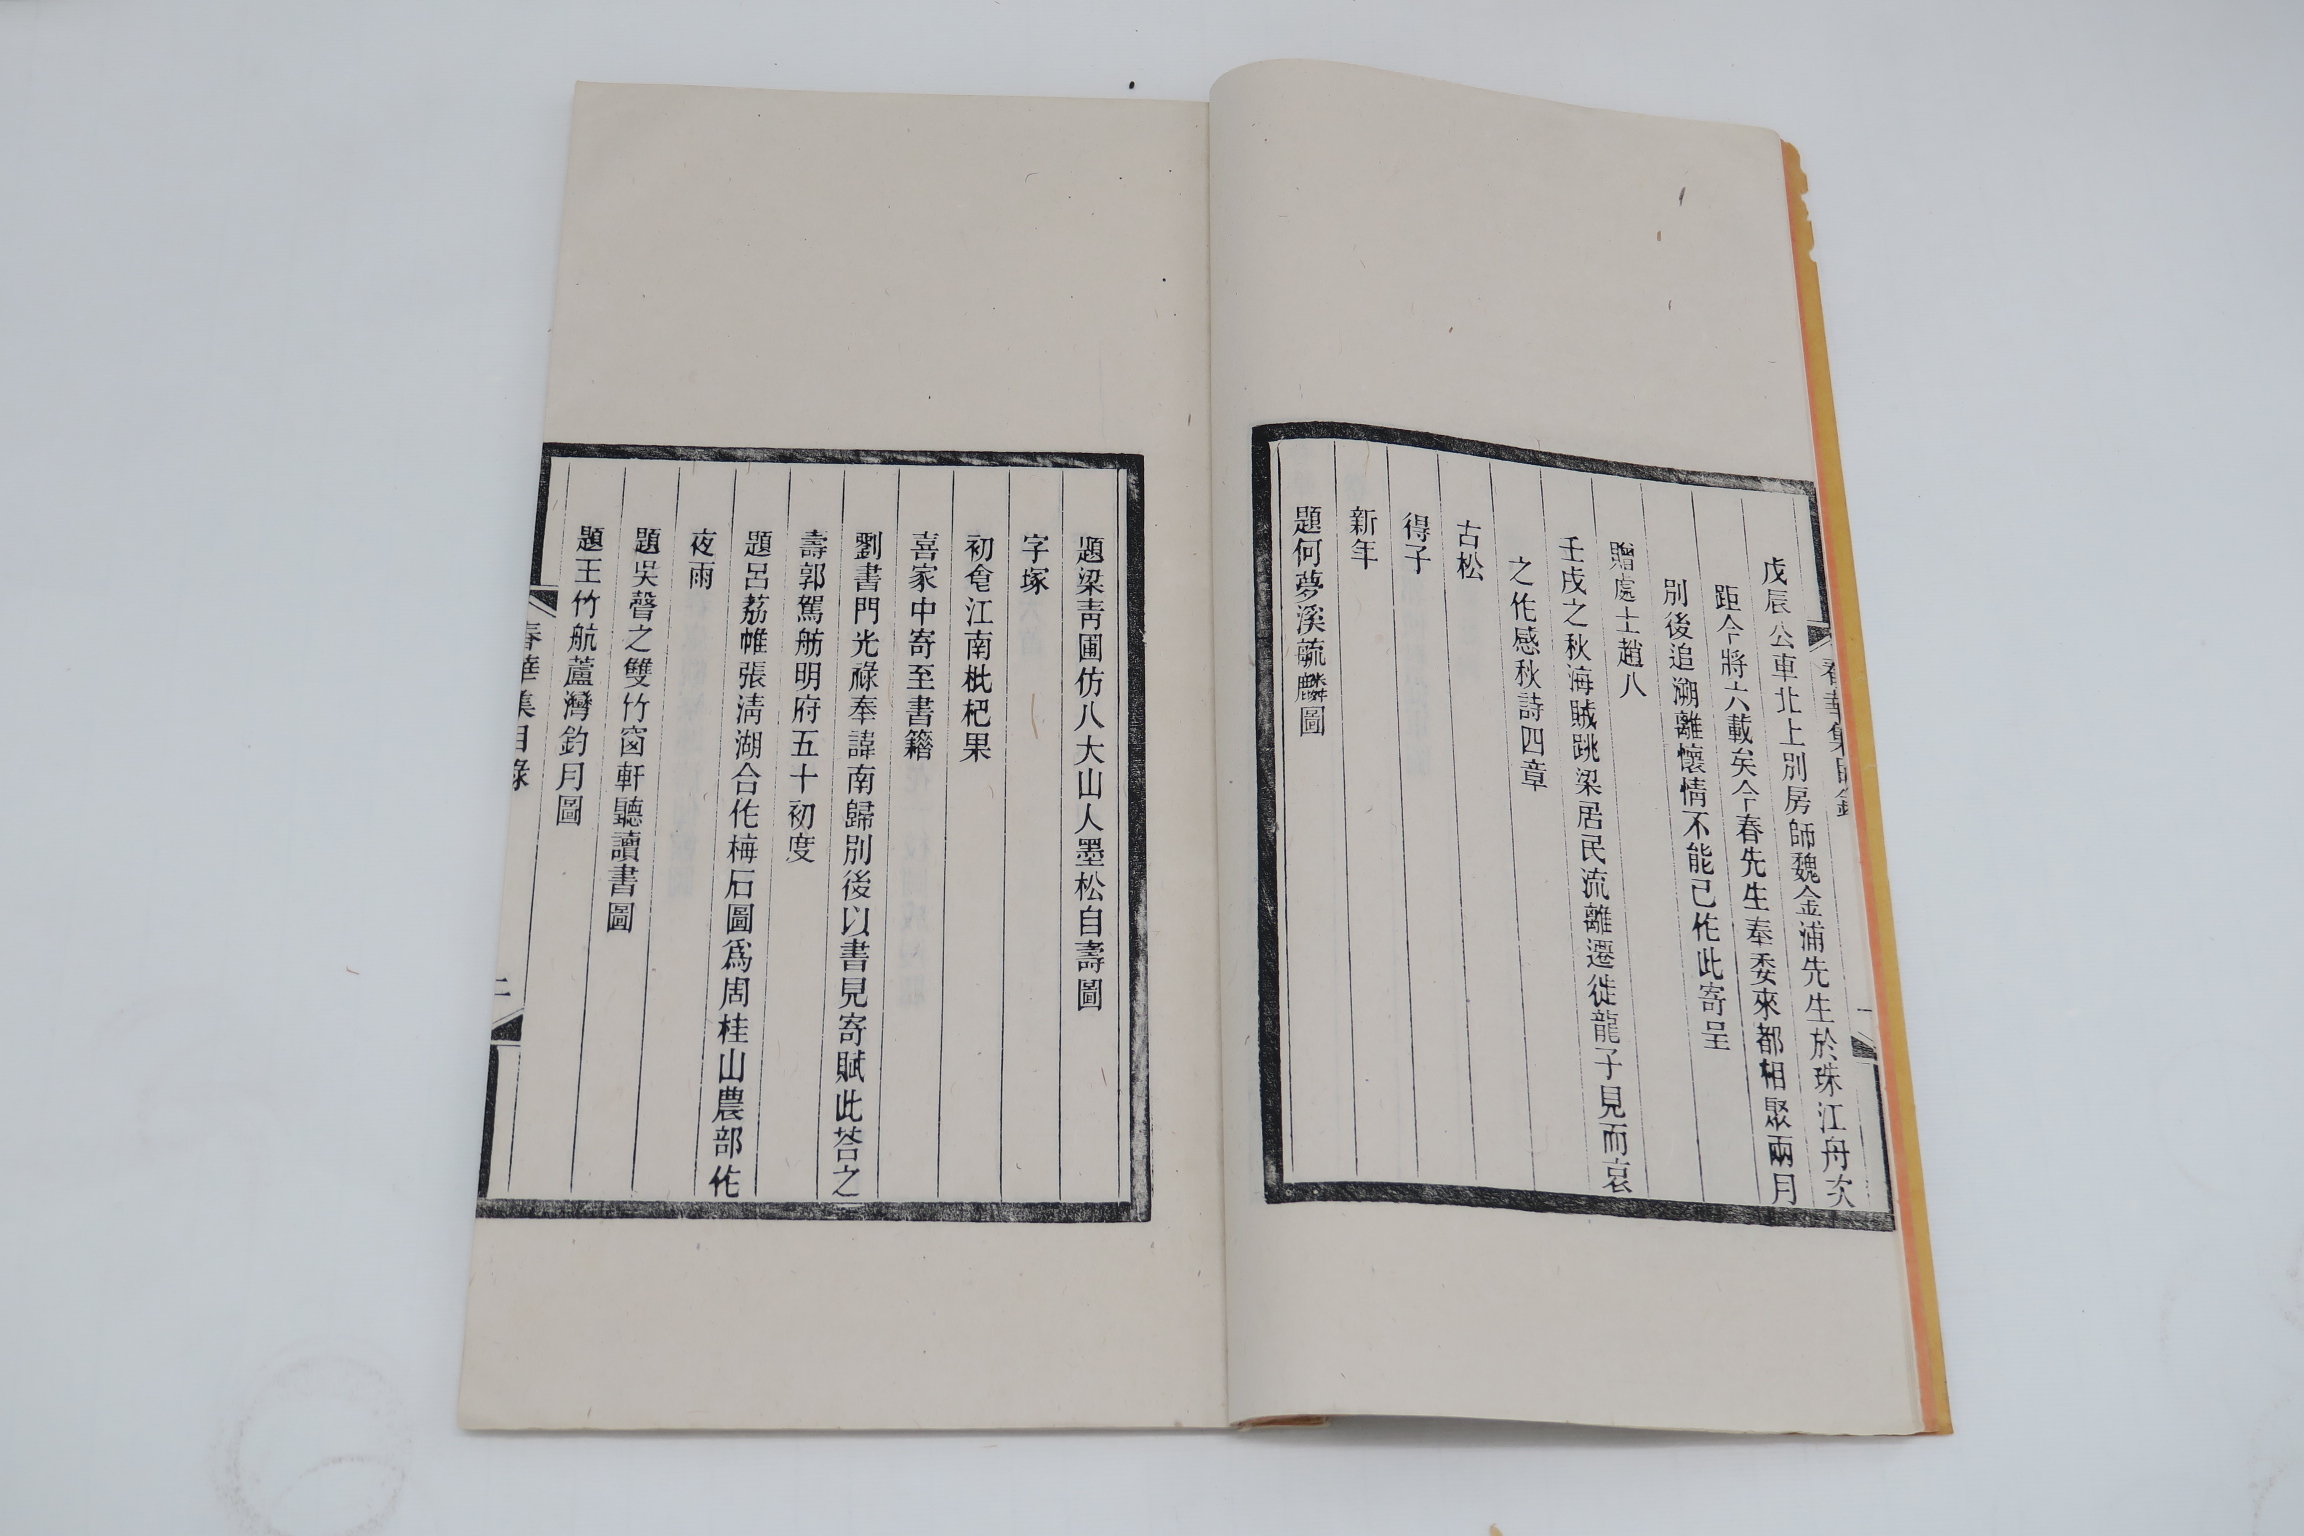 戊辰公車北上別房師魏金浦先生於珠江舟次
距今將六載矣今春先生奉委來都相聚兩月
別後追溯離懷情不能已作此寄呈
贈處士趙八
壬戌之秋海賊跳梁居民流離遷徙龍子見而哀
之作感秋詩四章
古松
得子
新年
題何夢溪毓麟圖
春華集目錄
一
題梁靑圃仿八大山人墨松自壽圖
字塚
初食江南枇杷果
喜家中寄至書籍
劉書門光祿奉諱南歸別後以書見寄賦此荅之
壽郭駕舫明府五十初度
題呂荔帷張淸湖合作梅石圖爲周桂山農部作
夜雨
題吳聲之雙竹窗軒聽讀書圖
題王竹航蘆灣釣月圖
春華集目錄
二